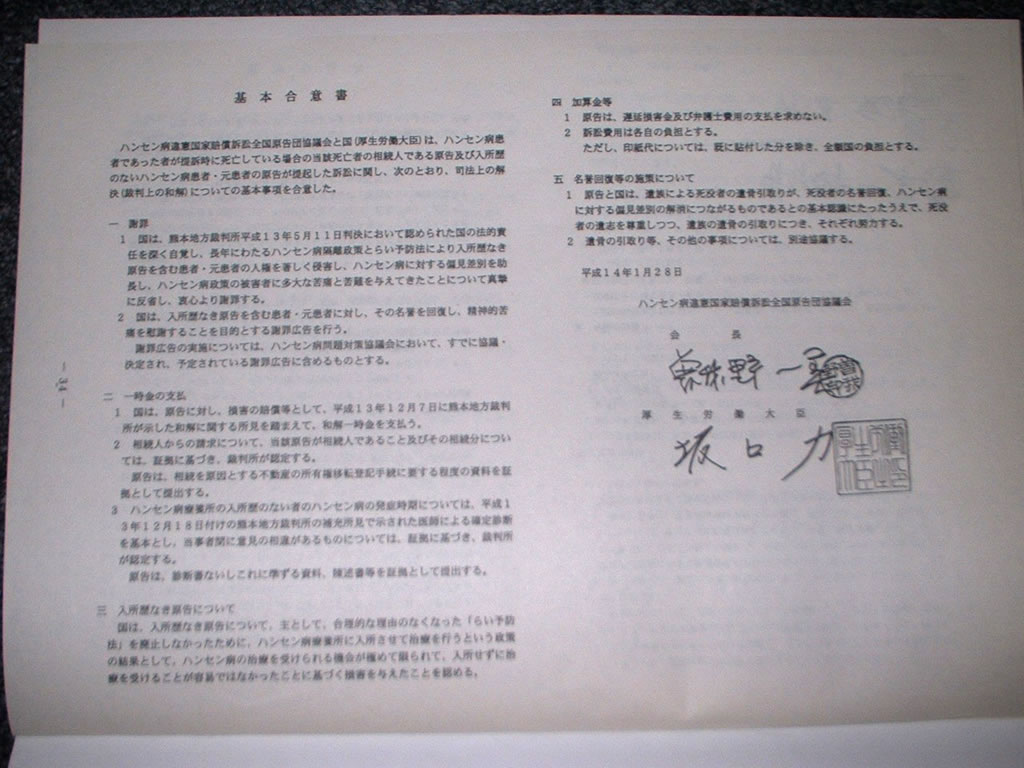 基本合意書
ハンセン病違憲国家賠償訴訟全国原告団協議会と国(厚生労働大臣)は、ハンセン病患
者であった者が提訴時に死亡している場合の当該死亡者の相続人である原告及び入所歴
のないハンセン病患者・元患者の原告が提起した訴訟に関し、次のとおり、司法上の解
決(裁判上の和解)についての基本事項を合意した。
一 謝罪
1 国は、熊本地方裁判所平成13年5月11日判決において認められた国の法的責
任を深く自覚し、長年にわたるハンセン病隔離政策とらい予防法により入所歴なき
原告を含む患者・元患者の人権を著しく侵害し、ハンセン病に対する偏見差別を助
長し、ハンセン病政策の被害者に多大な苦痛と苦難を与えてきたことについて真摯
に反省し、衷心より謝罪する。
2 国は、入所歴なき原告を含む患者・元患者に対し、その名誉を回復し、精神的苦
痛を慰謝することを目的とする謝罪広告を行う。
謝罪広告の実施については、ハンセン病問題対策協議会において、すでに協議・
決定され、予定されている謝罪広告に含めるものとする。
二 一時金の支払
1 国は、原告に対し、損害の賠償等として、平成13年12月7日に熊本地方裁判
所が示した和解に関する所見を踏まえて、和解一時金を支払う。
2 相続人からの請求について、当該原告が相続人であること及びその相続分につい
ては、証拠に基づき、裁判所が認定する。
原告は、相続を原因とする不動産の所有権移転登記手続に要する程度の資料を証
拠として提出する。
3 ハンセン病療養所の入所歴のない者のハンセン病の発症時期については、平成1
3年12月18日付けの熊本地方裁判所の補充所見で示された医師による確定診断
を基本とし、当事者間に意見の相違があるものについては、証拠に基づき、裁判所
が認定する。
原告は、診断書ないしこれに準ずる資料、陳述書等を証拠として提出する。
三 入所歴なき原告について
国は、入所歴なき原告について、主として、合理的な理由のなくなった「らい予防
法」を廃止しなかったために、ハンセン病療養所に入所させて治療を行うという政策
の結果として、ハンセン病の治療を受けられる機会が極めて限られて、入所せずに治
療を受けることが容易ではなかったことに基づく損害を与えたことを認める。
- 34 -
四 加算金等
1 原告は、遅延損害金及び弁護士費用の支払を求めない。
2 訴訟費用は各自の負担とする。
ただし、印紙代については、既に貼付した分を除き、全額国の負担とする。
五 名誉回復等の施策について
1 原告と国は、遺族による死没者の遺骨引取りが、死没者の名誉回復、ハンセン病
に対する偏見差別の解消につながるものであるとの基本認識にたったうえで、死没
者の遺志を尊重しつつ、遺族の遺骨の引取りにつき、それぞれ努力する。
2 遺骨の引取り等、その他の事項については、別途協議する。
平成14年1月28日
ハンセン病違憲国家賠償訴訟全国原告団協議会
会長
野 一
厚生労働大臣
坂口 力
厚生労働大臣